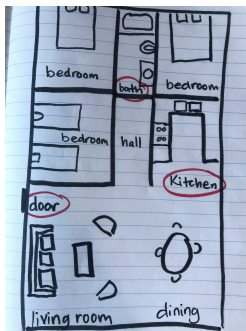 bedroom
bath
bedroom
bedroom
hall
Kitchen
door
living room
dining